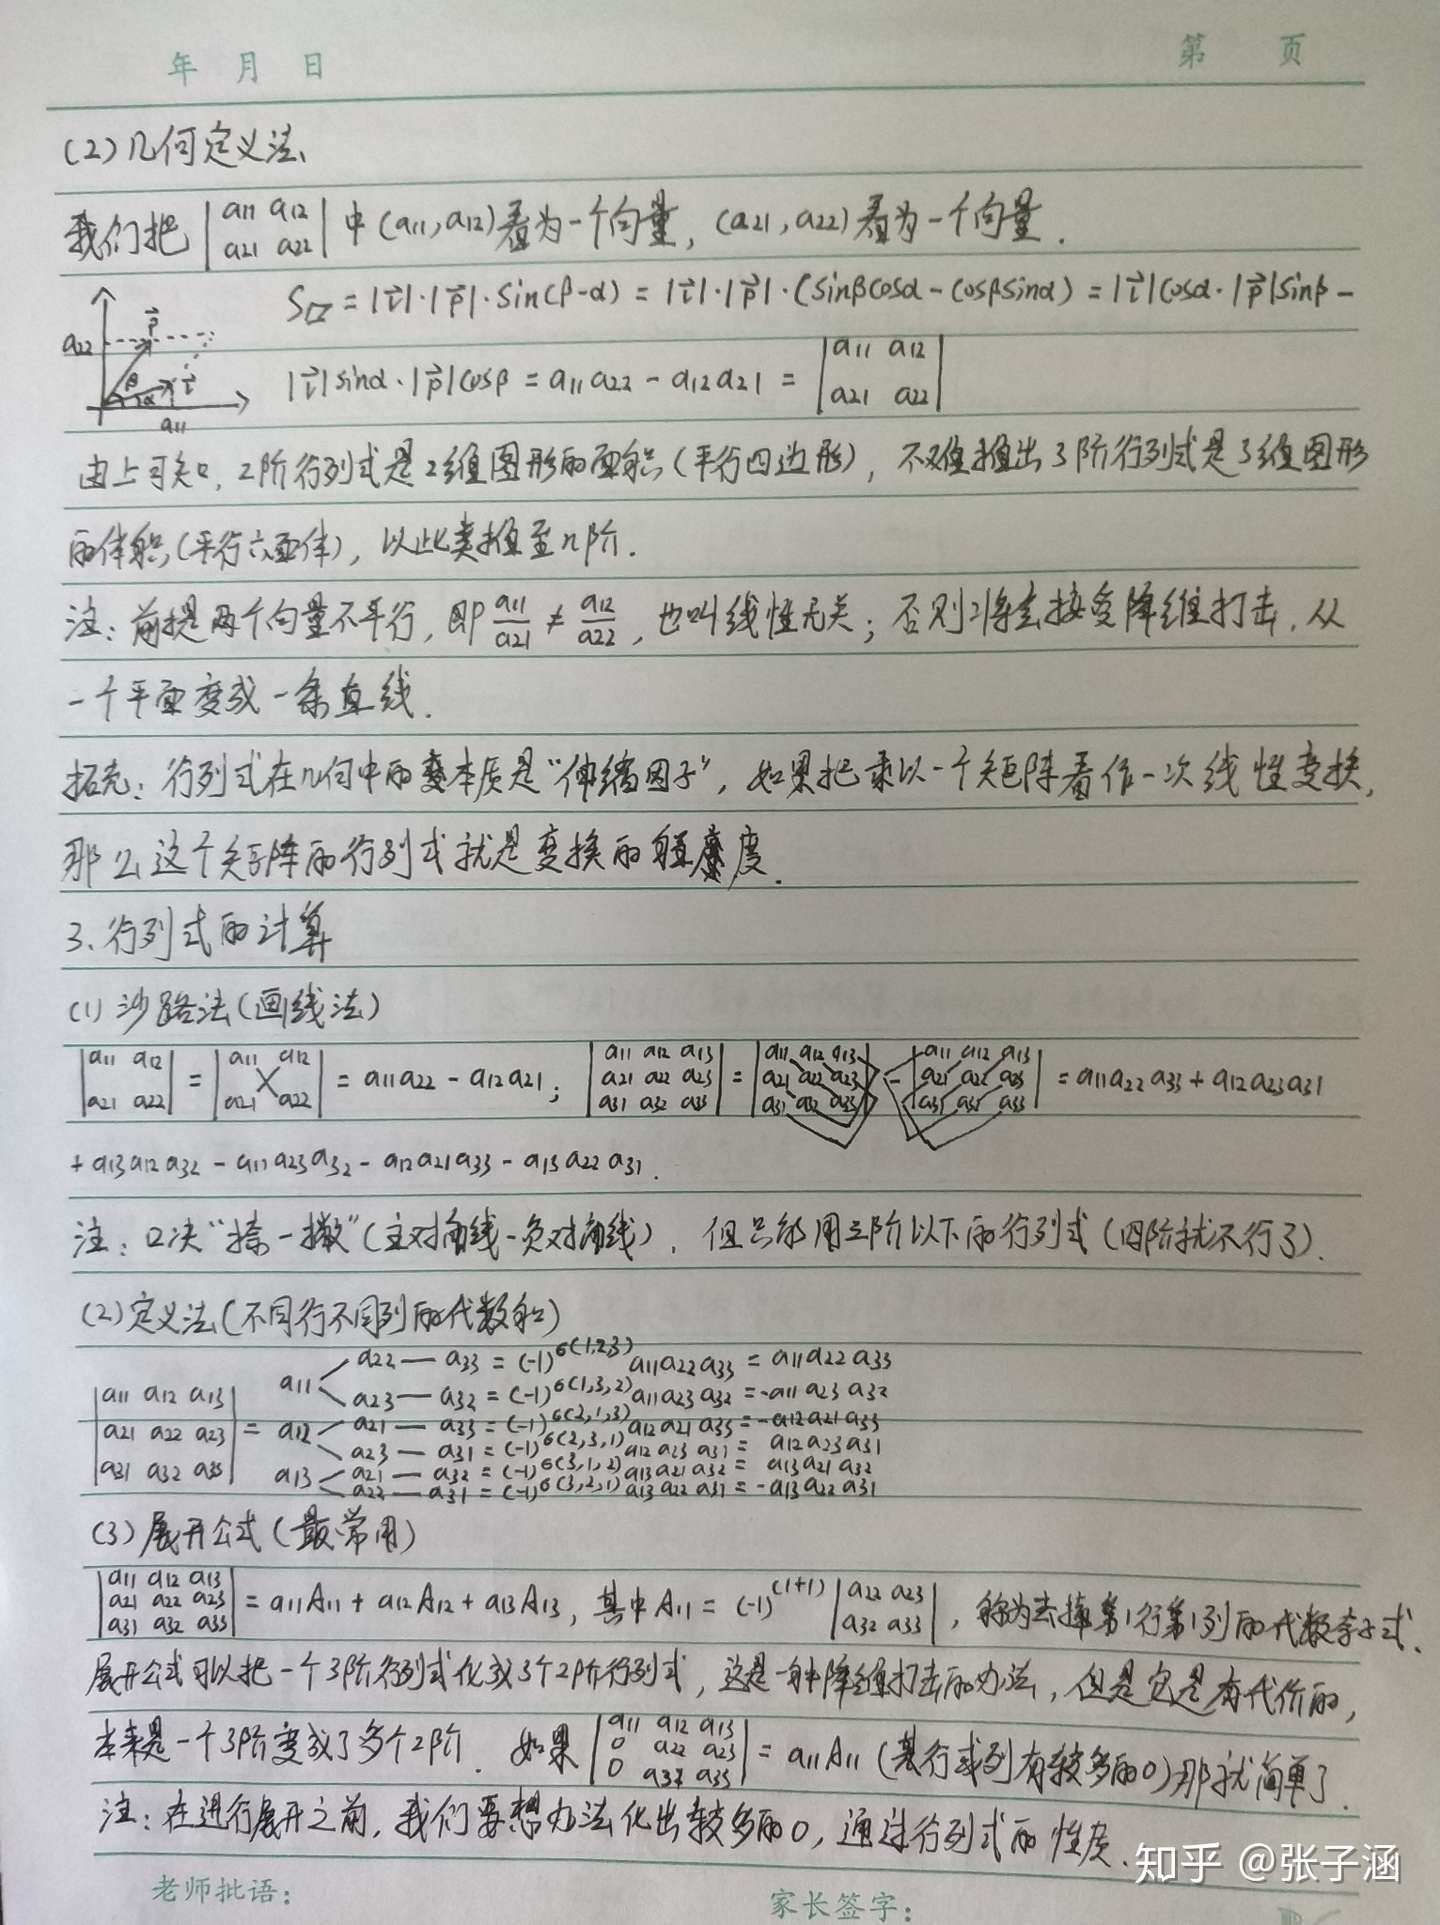 年 月 日 第 页
(2) 几何定义法
我们把 |a11 a12 a21 a22| 中 (a11,a12) 看为一个向量, (a21,a22) 看为一个向量.
a22 p β α l a11
S▱ = |l|·|p|·sin(β-α) = |l|·|p|·(sinβcosα-cosβsinα) = |l|cosα·|p|sinβ-
|l|sinα·|p|cosβ = a11a22 - a12a21 = |a11 a12 a21 a22|
由上可知, 2阶行列式是2维图形的面积(平行四边形), 不难推出3阶行列式是3维图形
的体积(平行六面体), 以此类推至n阶.
注: 前提两个向量不平行, 即 a11/a21 ≠ a12/a22, 也叫线性无关; 否则将会接受降维打击, 从
一个平面变成一条直线.
拓充: 行列式在几何中的本质是"伸缩因子", 如果把乘以一个矩阵看作一次线性变换,
那么这个矩阵的行列式就是变换的 度.
3、行列式的计算
(1) 沙路法(画线法)
|a11 a12 a21 a22| = |a11 a12 a21 a22| = a11a22 - a12a21; |a11 a12 a13 a21 a22 a23 a31 a32 a33| = |a11 a12 a13 a21 a22 a23 a31 a32 a33| - |a11 a12 a13 a21 a22 a23 a31 a32 a33| = a11a22a33 + a12a23a31
+ a13a12a32 - a11a23a32 - a12a21a33 - a13a22a31.
注: 口决"捺一撇"(主对角线-负对角线), 但只能用三阶以下的行列式(四阶就不行了).
(2) 定义法(不同行不同列的代数和)
a11 a22 — a33 = (-1)^6(1,2,3) a11a22a33 = a11a22a33
a23 — a32 = (-1)^6(1,3,2) a11a23a32 = -a11a23a32
|a11 a12 a13 a21 a22 a23 a31 a32 a33| = a12 a21 — a33 = (-1)^6(2,1,3) a12a21a33 = -a12a21a33
a23 — a31 = (-1)^6(2,3,1) a12a23a31 = a12a23a31
a13 a21 — a32 = (-1)^6(3,1,2) a13a21a32 = a13a21a32
a22 — a31 = (-1)^6(3,2,1) a13a22a31 = -a13a22a31
(3) 展开公式(最常用)
|a11 a12 a13 a21 a22 a23 a31 a32 a33| = a11A11 + a12A12 + a13A13, 其中A11 = (-1)^(1+1) |a22 a23 a32 a33|, 称为去掉第1行第1列的代数余子式.
展开公式可以把一个3阶行列式化成3个2阶行列式, 这是一种降维打击的办法, 但是它是有代价的,
本来是一个3阶变成了多个2阶. 如果 |a11 a12 a13 0 a22 a23 0 a32 a33| = a11A11 (某行或列有较多的0)那就简单了.
注: 在进行展开之前, 我们要想办法化出较多的0, 通过行列式的性质.
知乎 @张子涵
老师批语: 家长签字: